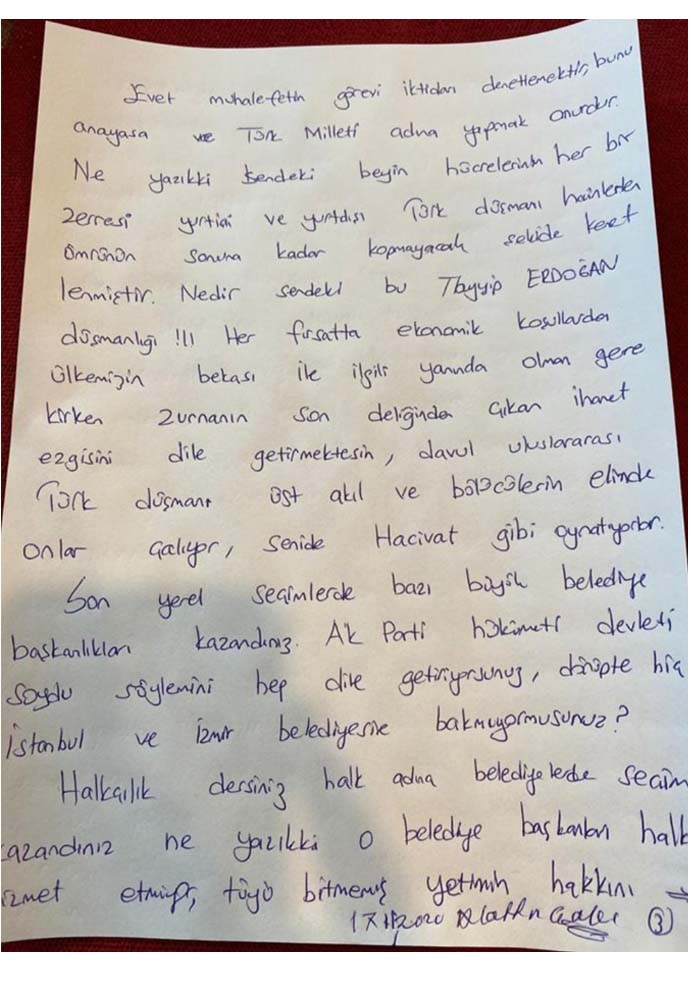 Evet muhalefetin görevi iktidarı denetlemektir, bunu
anayasa ve Türk Milleti adına yapmak onurdur.
Ne yazıkki sendeki beyin hücrelerinin her bir
zerresi yurtiçi ve yurtdışı Türk düşmanı hainlerden
ömrünün sonuna kadar kopmayacak şekilde kenet
lenmiştir. Nedir sendeki bu Tayyip ERDOĞAN
düşmanlığı !!! Her fırsatta ekonomik koşullarda
ülkemizin bekası ile ilgili yanında olman gere
kirken zurnanın son deliğinden çıkan ihanet
ezgisini dile getirmektesin, davul uluslararası
Türk düşmanı üst akıl ve bölücülerin elinde
onlar çalıyor, senide Hacivat gibi oynatıyorlar.
Son yerel seçimlerde bazı büyük belediye
başkanlıkları kazandınız. Ak Parti hükümeti devleti
soydu söylemini hep dile getiriyorsunuz, dönüpte hiç
İstanbul ve İzmir belediyesine bakmıyormusunuz?
Halkçılık dersiniz halk adına belediyelerde seçim
kazandınız ne yazıkki o belediye başkanları halk
izmet etmiyor, tüyü bitmemiş yetimin hakkını →
17.11.2020 (3)